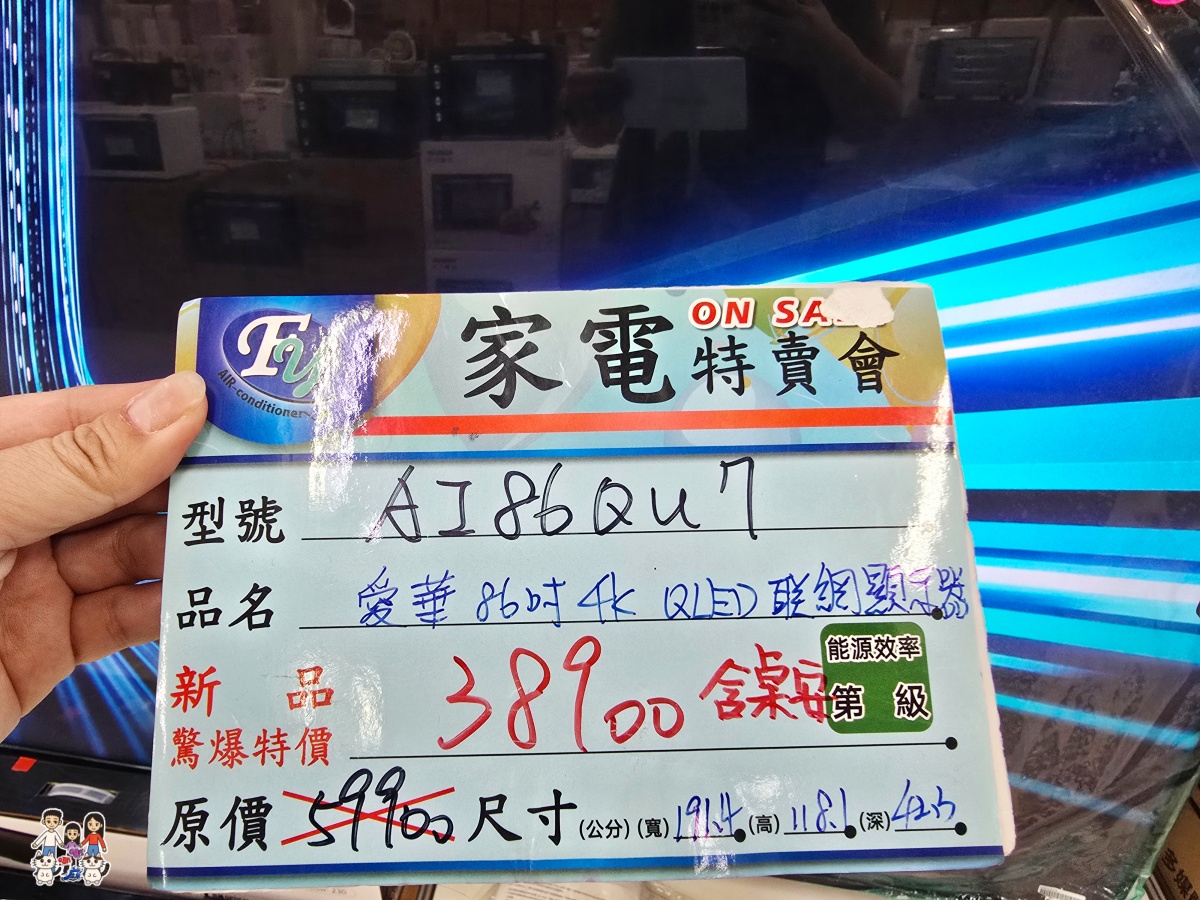 Fy
AIR-conditioner
家電 ON SA
特賣會
型號 AI86QU7
品名 愛華 86吋 4K QLED 联網顯示器
新品 38900 含桌安
驚爆特價
能源效率
第 級
原價 59900 尺寸(公分) (寬) 191.4 (高) 118.1 (深) 42.3